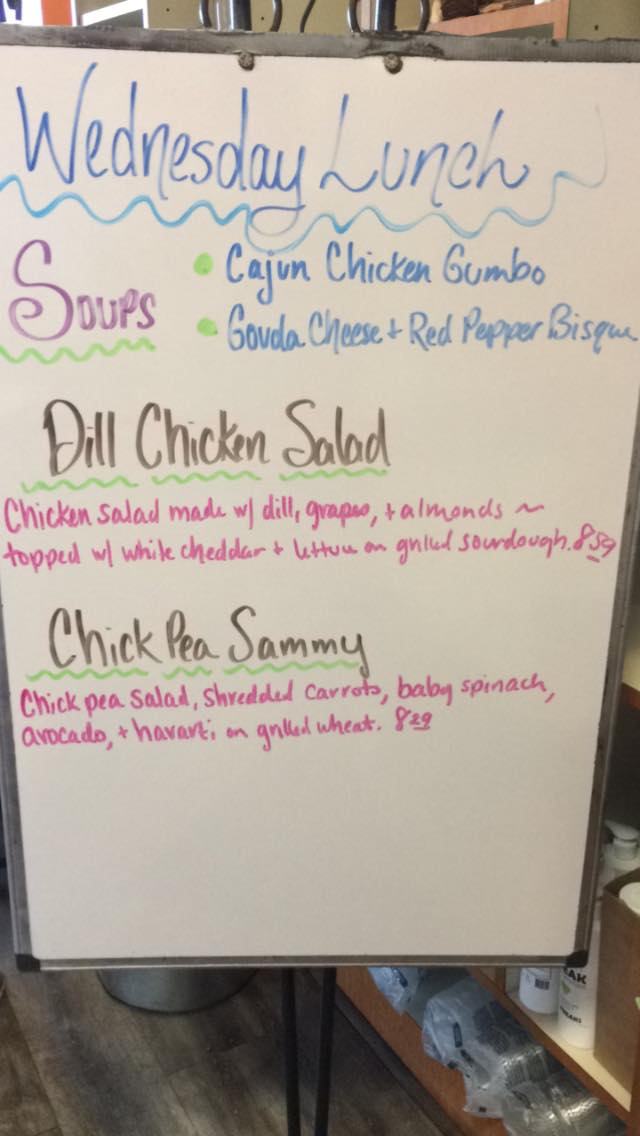 Wednesday Lunch
Soups
• Cajun Chicken Gumbo
• Gouda Cheese + Red Pepper Bisque
Dill Chicken Salad
Chicken salad made w/ dill, grapes, + almonds ~
topped w/ white cheddar + lettuce on grilled sourdough. 8 59
Chick Pea Sammy
Chick pea salad, shredded carrots, baby spinach,
avocado, + havarti on grilled wheat. 8 29